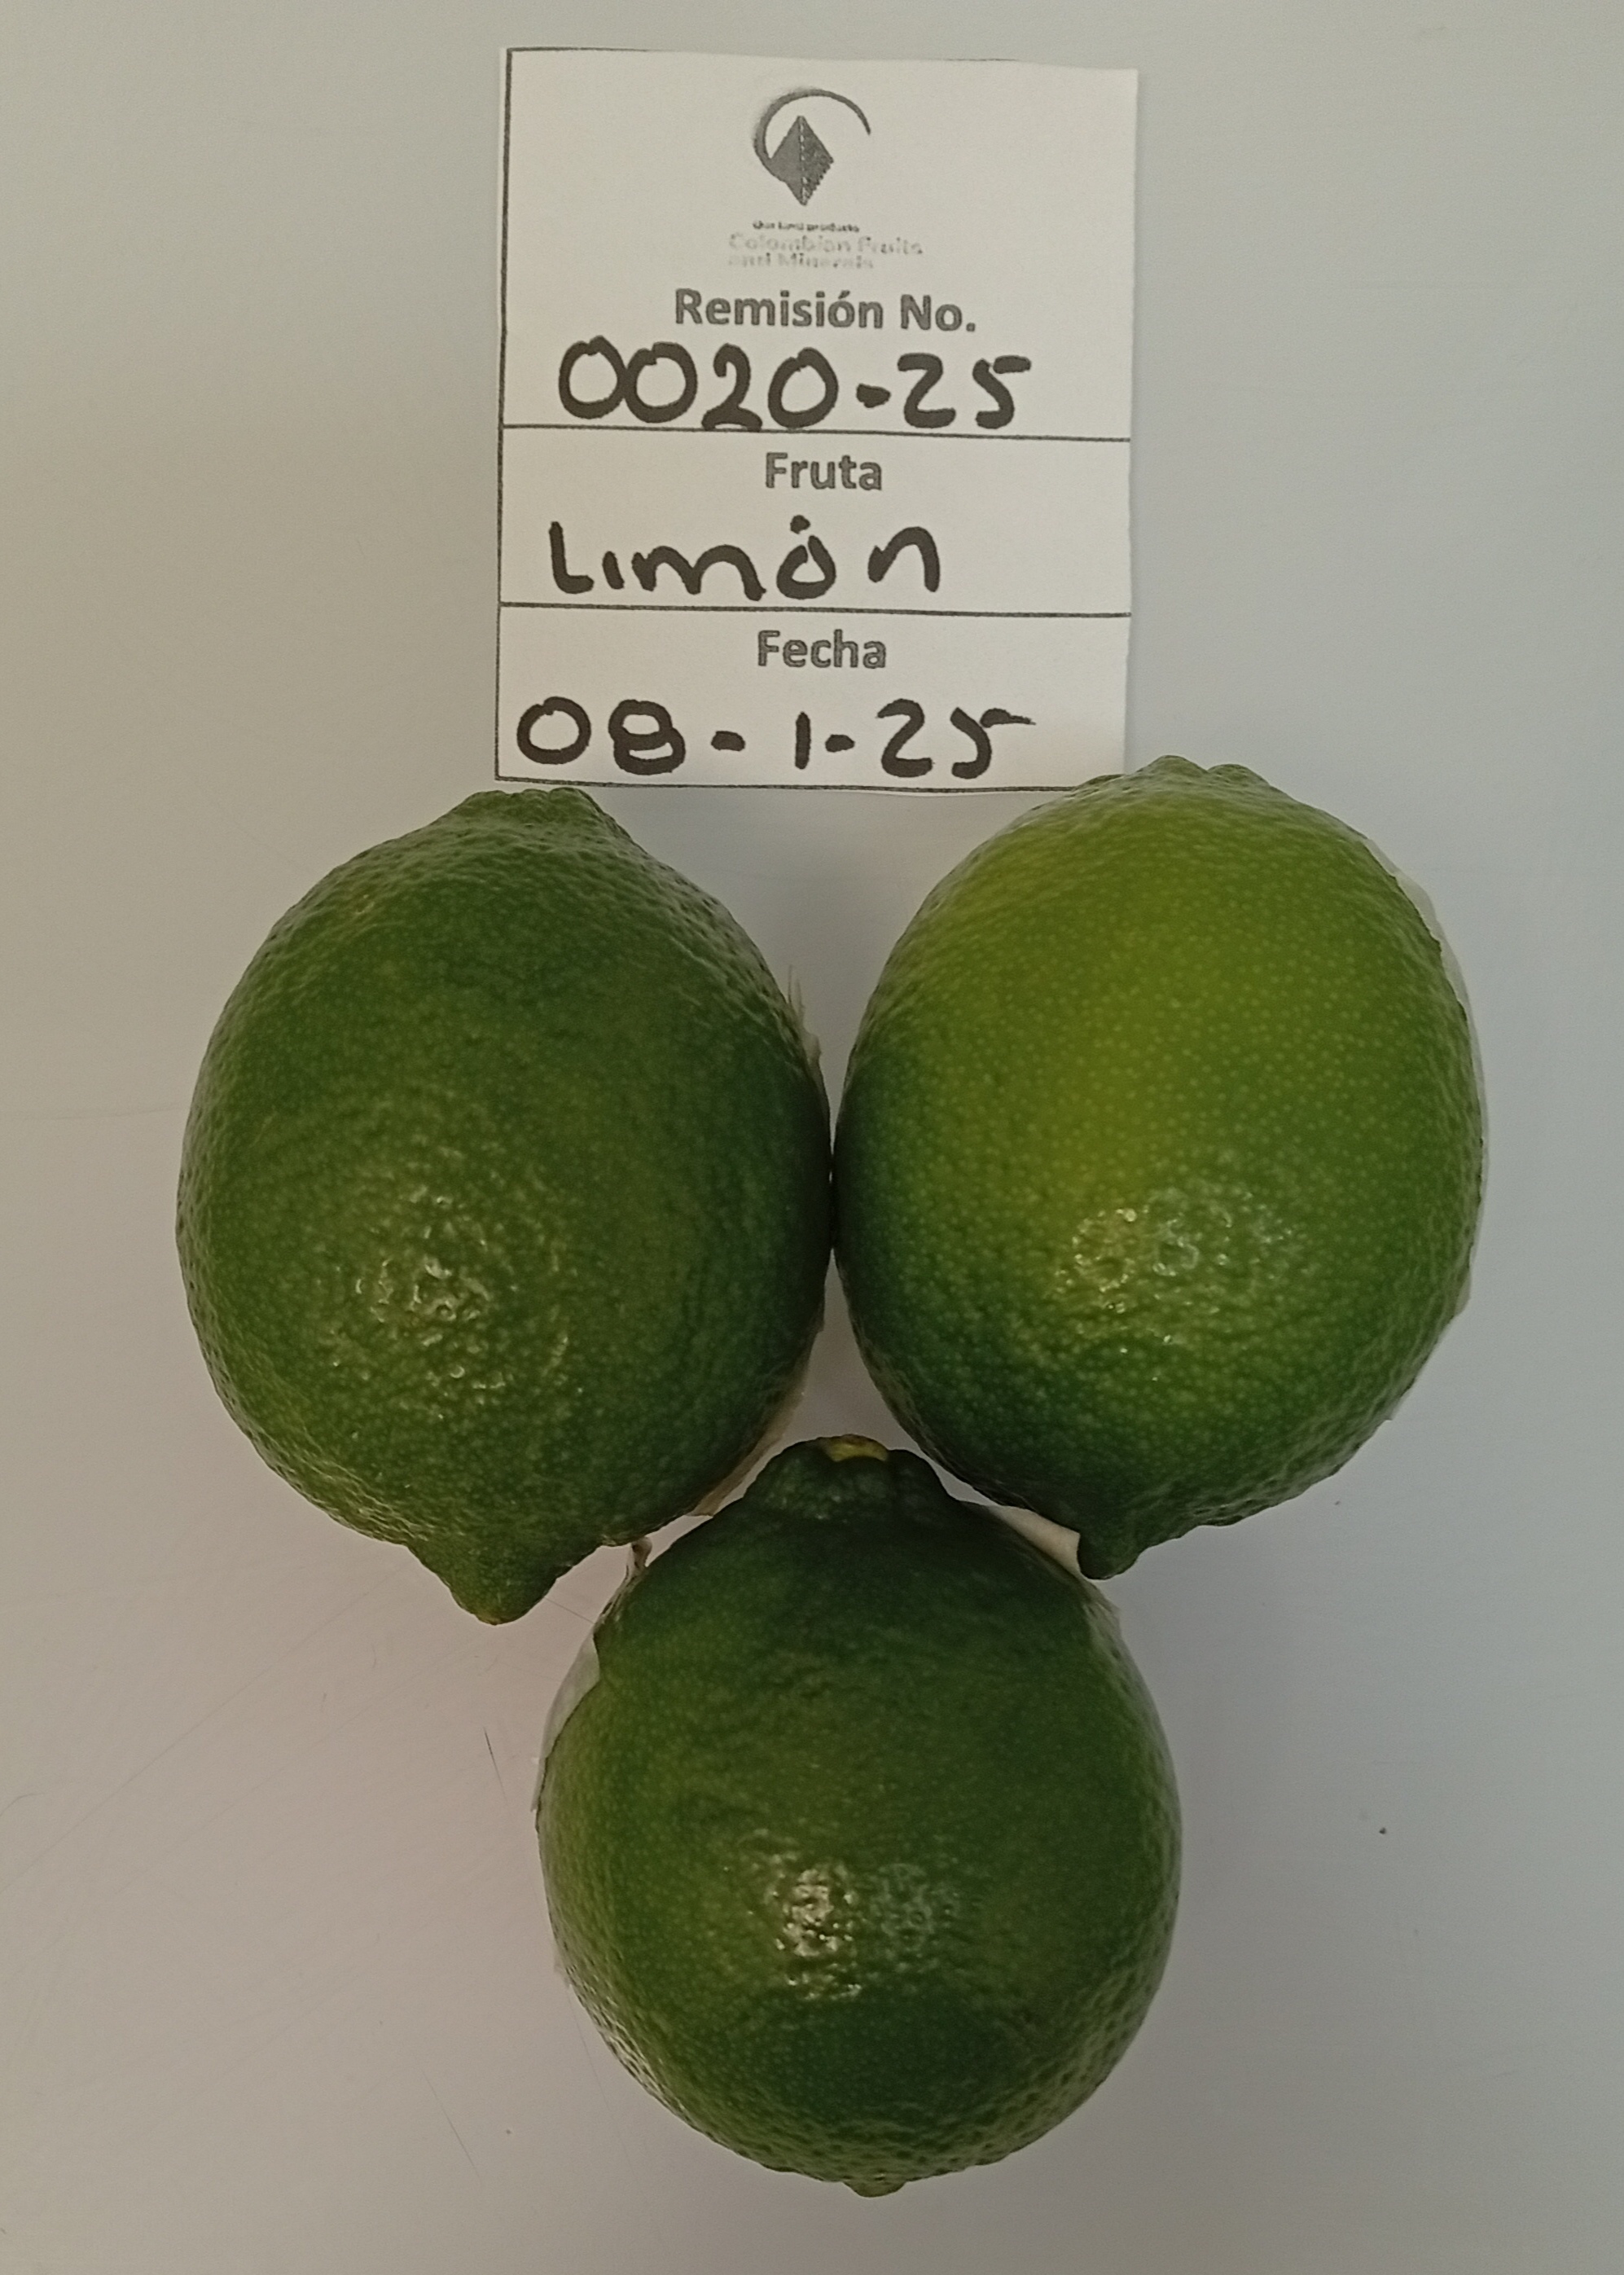 Our land products
Colombian Fruits
and Minerals
Remisión No.
0020-25
Fruta
Limón
Fecha
08-1-25